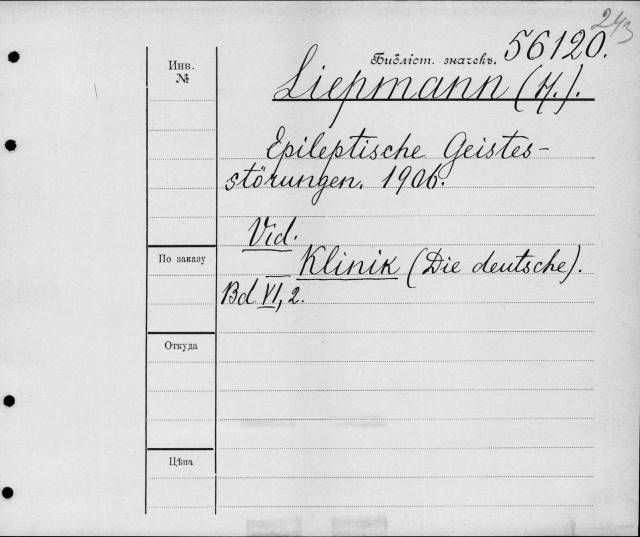 243
Инв.
№
Библіот. значекъ. 56120.
Liepmann (H.).
Epileptische Geistes-
störungen. 1906.
Vid.
Klinik (Die deutsche).
Bd VI, 2.
По заказу
Откуда
Цѣна